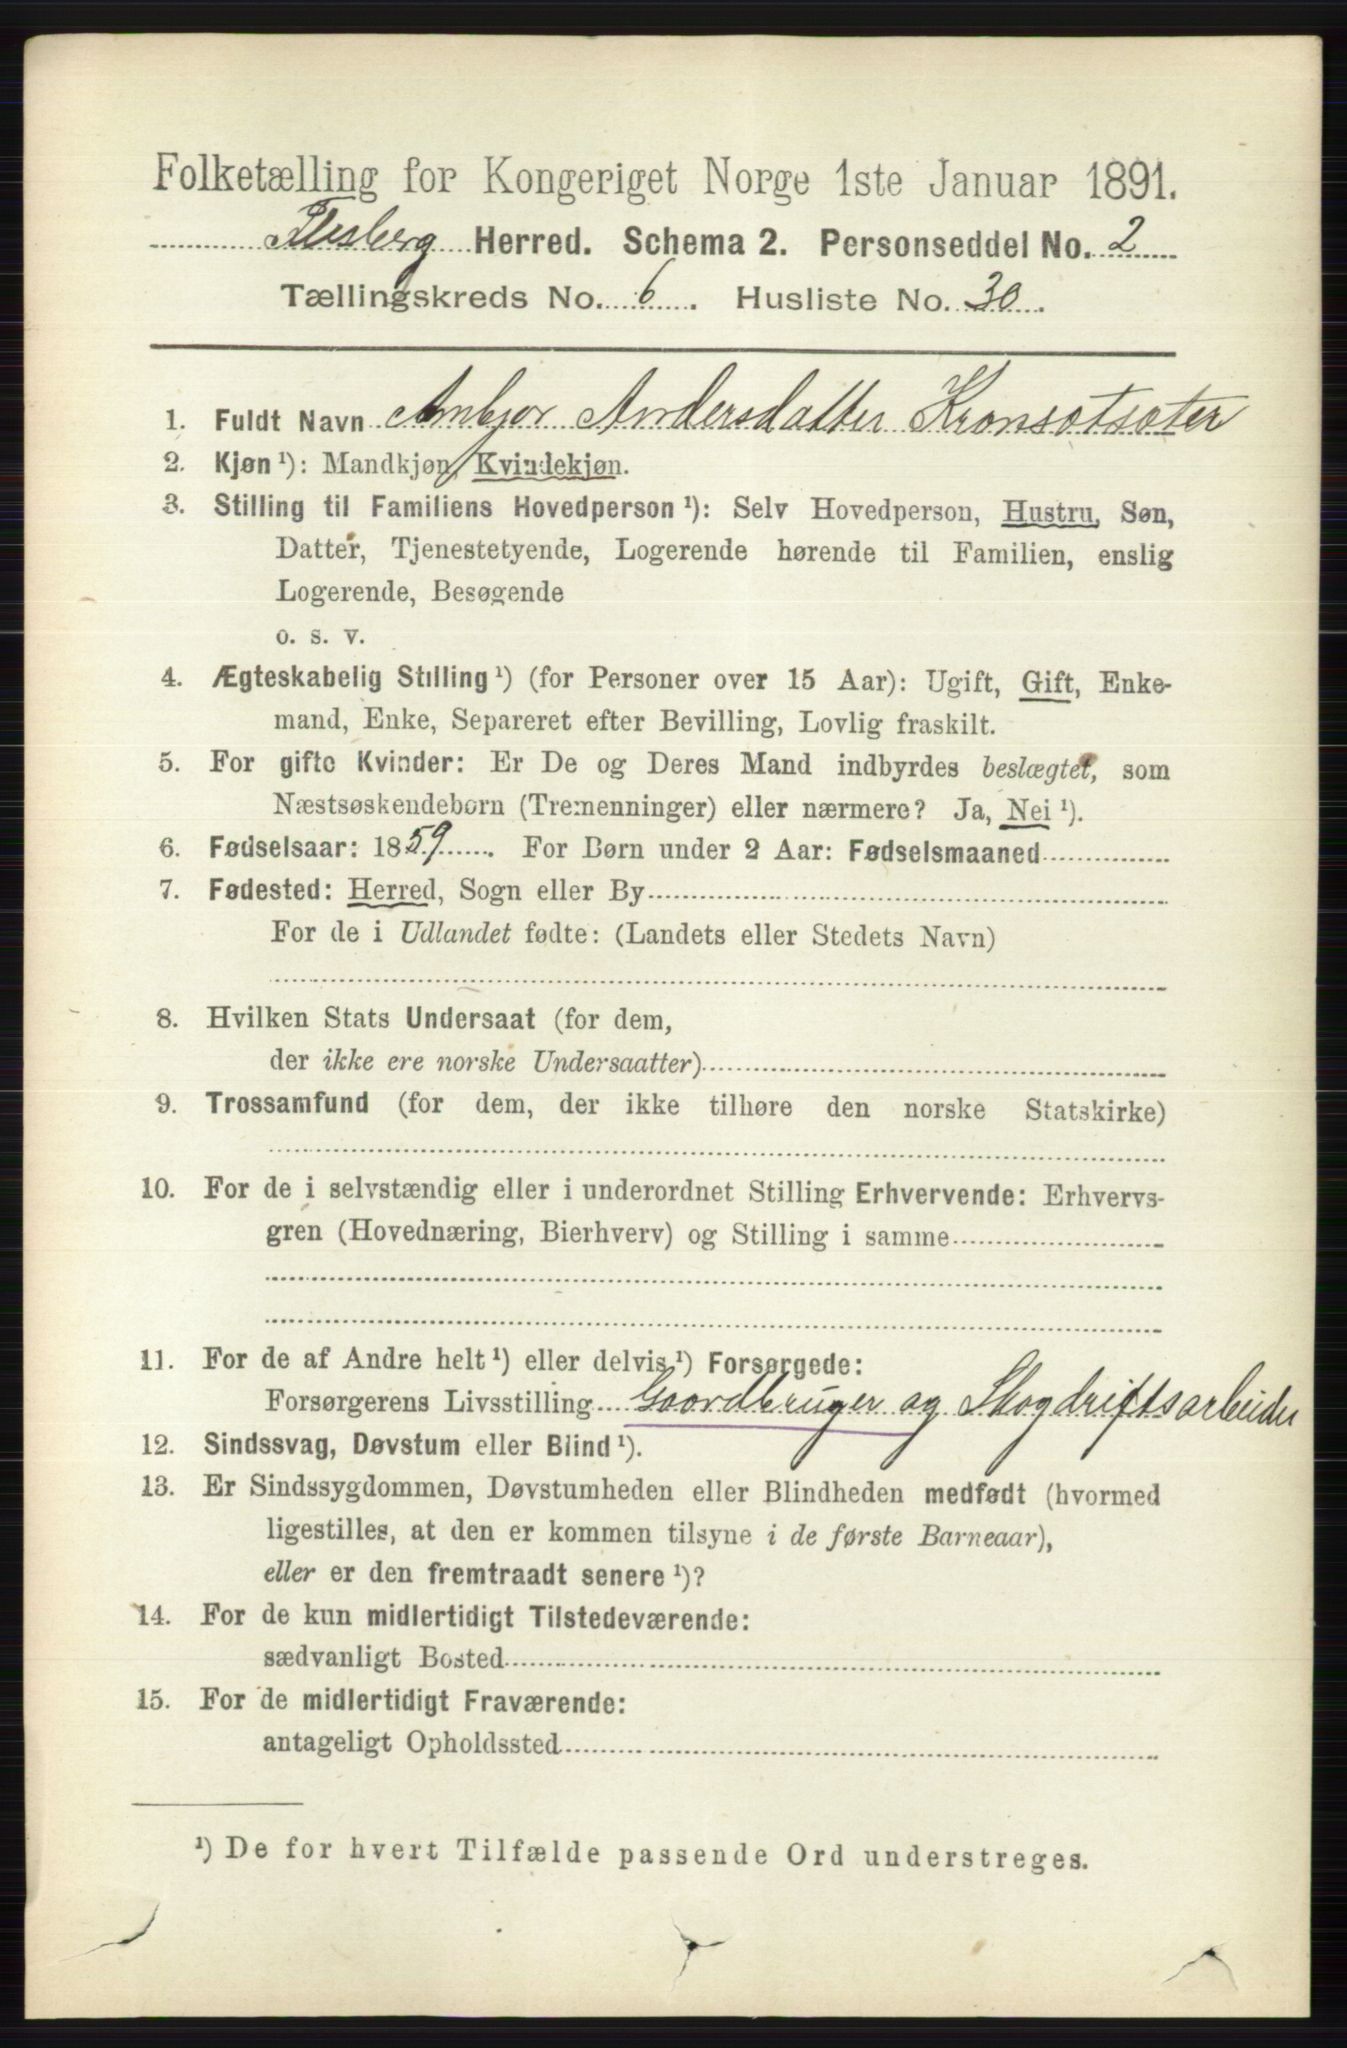 Folketælling for Kongeriget Norge 1ste Januar 1891.
Flesberg Herred. Schema 2. Personseddel No. 2
Tællingskreds No. 6. Husliste No. 30.
1. Fuldt Navn Anbjør Andersdatter Kronsætsæter
2. Kjøn ¹): Mandkjøn, Kvindekjøn.
3. Stilling til Familiens Hovedperson ¹): Selv Hovedperson, Hustru, Søn,
Datter, Tjenestetyende, Logerende hørende til Familien, enslig
Logerende, Besøgende
o. s. v.
4. Ægteskabelig Stilling ¹) (for Personer over 15 Aar): Ugift, Gift, Enke-
mand, Enke, Separeret efter Bevilling, Lovlig fraskilt.
5. For gifte Kvinder: Er De og Deres Mand indbyrdes beslægtet, som
Næstsøskendebørn (Tremenninger) eller nærmere? Ja, Nei ¹).
6. Fødselsaar: 1859. For Børn under 2 Aar: Fødselsmaaned
7. Fødested: Herred, Sogn eller By
For de i Udlandet fødte: (Landets eller Stedets Navn)
8. Hvilken Stats Undersaat (for dem,
der ikke ere norske Undersaatter)
9. Trossamfund (for dem, der ikke tilhøre den norske Statskirke)
10. For de i selvstændig eller i underordnet Stilling Erhvervende: Erhvervs-
gren (Hovednæring, Bierhverv) og Stilling i samme
11. For de af Andre helt ¹) eller delvis ¹) Forsørgede:
Forsørgerens Livsstilling Goordbruger og Skogdriftsarbeider
12. Sindssvag, Døvstum eller Blind ¹).
13. Er Sindssygdommen, Døvstumheden eller Blindheden medfødt (hvormed
ligestilles, at den er kommen tilsyne i de første Barneaar),
eller er den fremtraadt senere ¹)?
14. For de kun midlertidigt Tilstedeværende:
sædvanligt Bosted
15. For de midlertidigt Fraværende:
antageligt Opholdssted
¹) De for hvert Tilfælde passende Ord understreges.